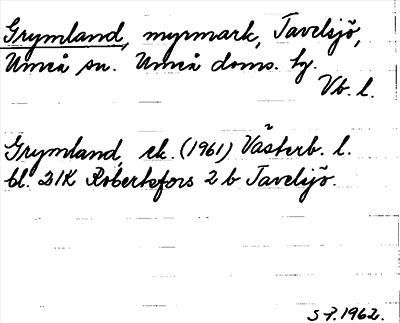 Grymland, myrmark, Tavelsjö,
Umeå sn. Umeå doms. hg.
Vb. l.
Grymland, ek. (1961) Västerb. l.
bl. 21K Robertsfors 2 b Tavelsjö.
1962.